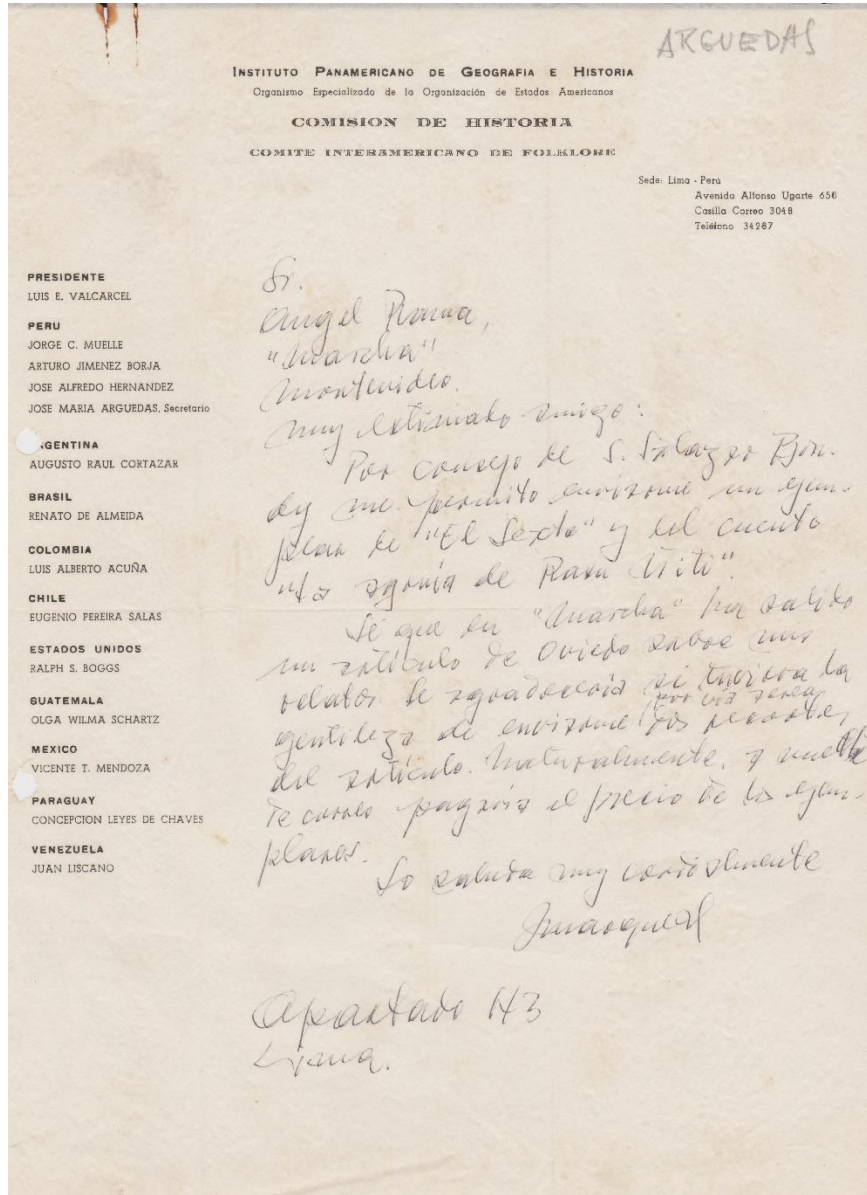 ARGUEDAS
INSTITUTO PANAMERICANO DE GEOGRAFIA E HISTORIA
Organismo Especializado de la Organización de Estados Americanos
COMISION DE HISTORIA
COMITE INTERAMERICANO DE FOLKLORE
Sede: Lima - Perú
Avenida Alfonso Ugarte 650
Casilla Correo 3048
Teléfono 34287
PRESIDENTE
LUIS E. VALCARCEL
PERU
JORGE C. MUELLE
ARTURO JIMENEZ BORJA
JOSE ALFREDO HERNANDEZ
JOSE MARIA ARGUEDAS, Secretario
GENTINA
AUGUSTO RAUL CORTAZAR
BRASIL
RENATO DE ALMEIDA
COLOMBIA
LUIS ALBERTO ACUÑA
CHILE
EUGENIO PEREIRA SALAS
ESTADOS UNIDOS
RALPH S. BOGGS
GUATEMALA
OLGA WILMA SCHARTZ
MEXICO
VICENTE T. MENDOZA
PARAGUAY
CONCEPCION LEYES DE CHAVES
VENEZUELA
JUAN LISCANO
Sr.
Angel Rama,
"Marcha"
Montevideo.
Muy estimado amigo:
Por consejo de S. Salazar Bon-
dy me permito enviarme un ejem-
plar de "El Sexto" y del cuento
"La agonía de Rasu Ñiti".
Sé que en "Marcha" ha salido
un artículo de Oviedo sobre mis
relatos. Le agradecería si tuviera la
gentileza de enviarme por vía aérea dos
del artículo. Naturalmente, a vuelta
de correo pagaría el precio de los ejem-
plares.
Lo saluda muy cordialmente
Apartado 43
Lima.